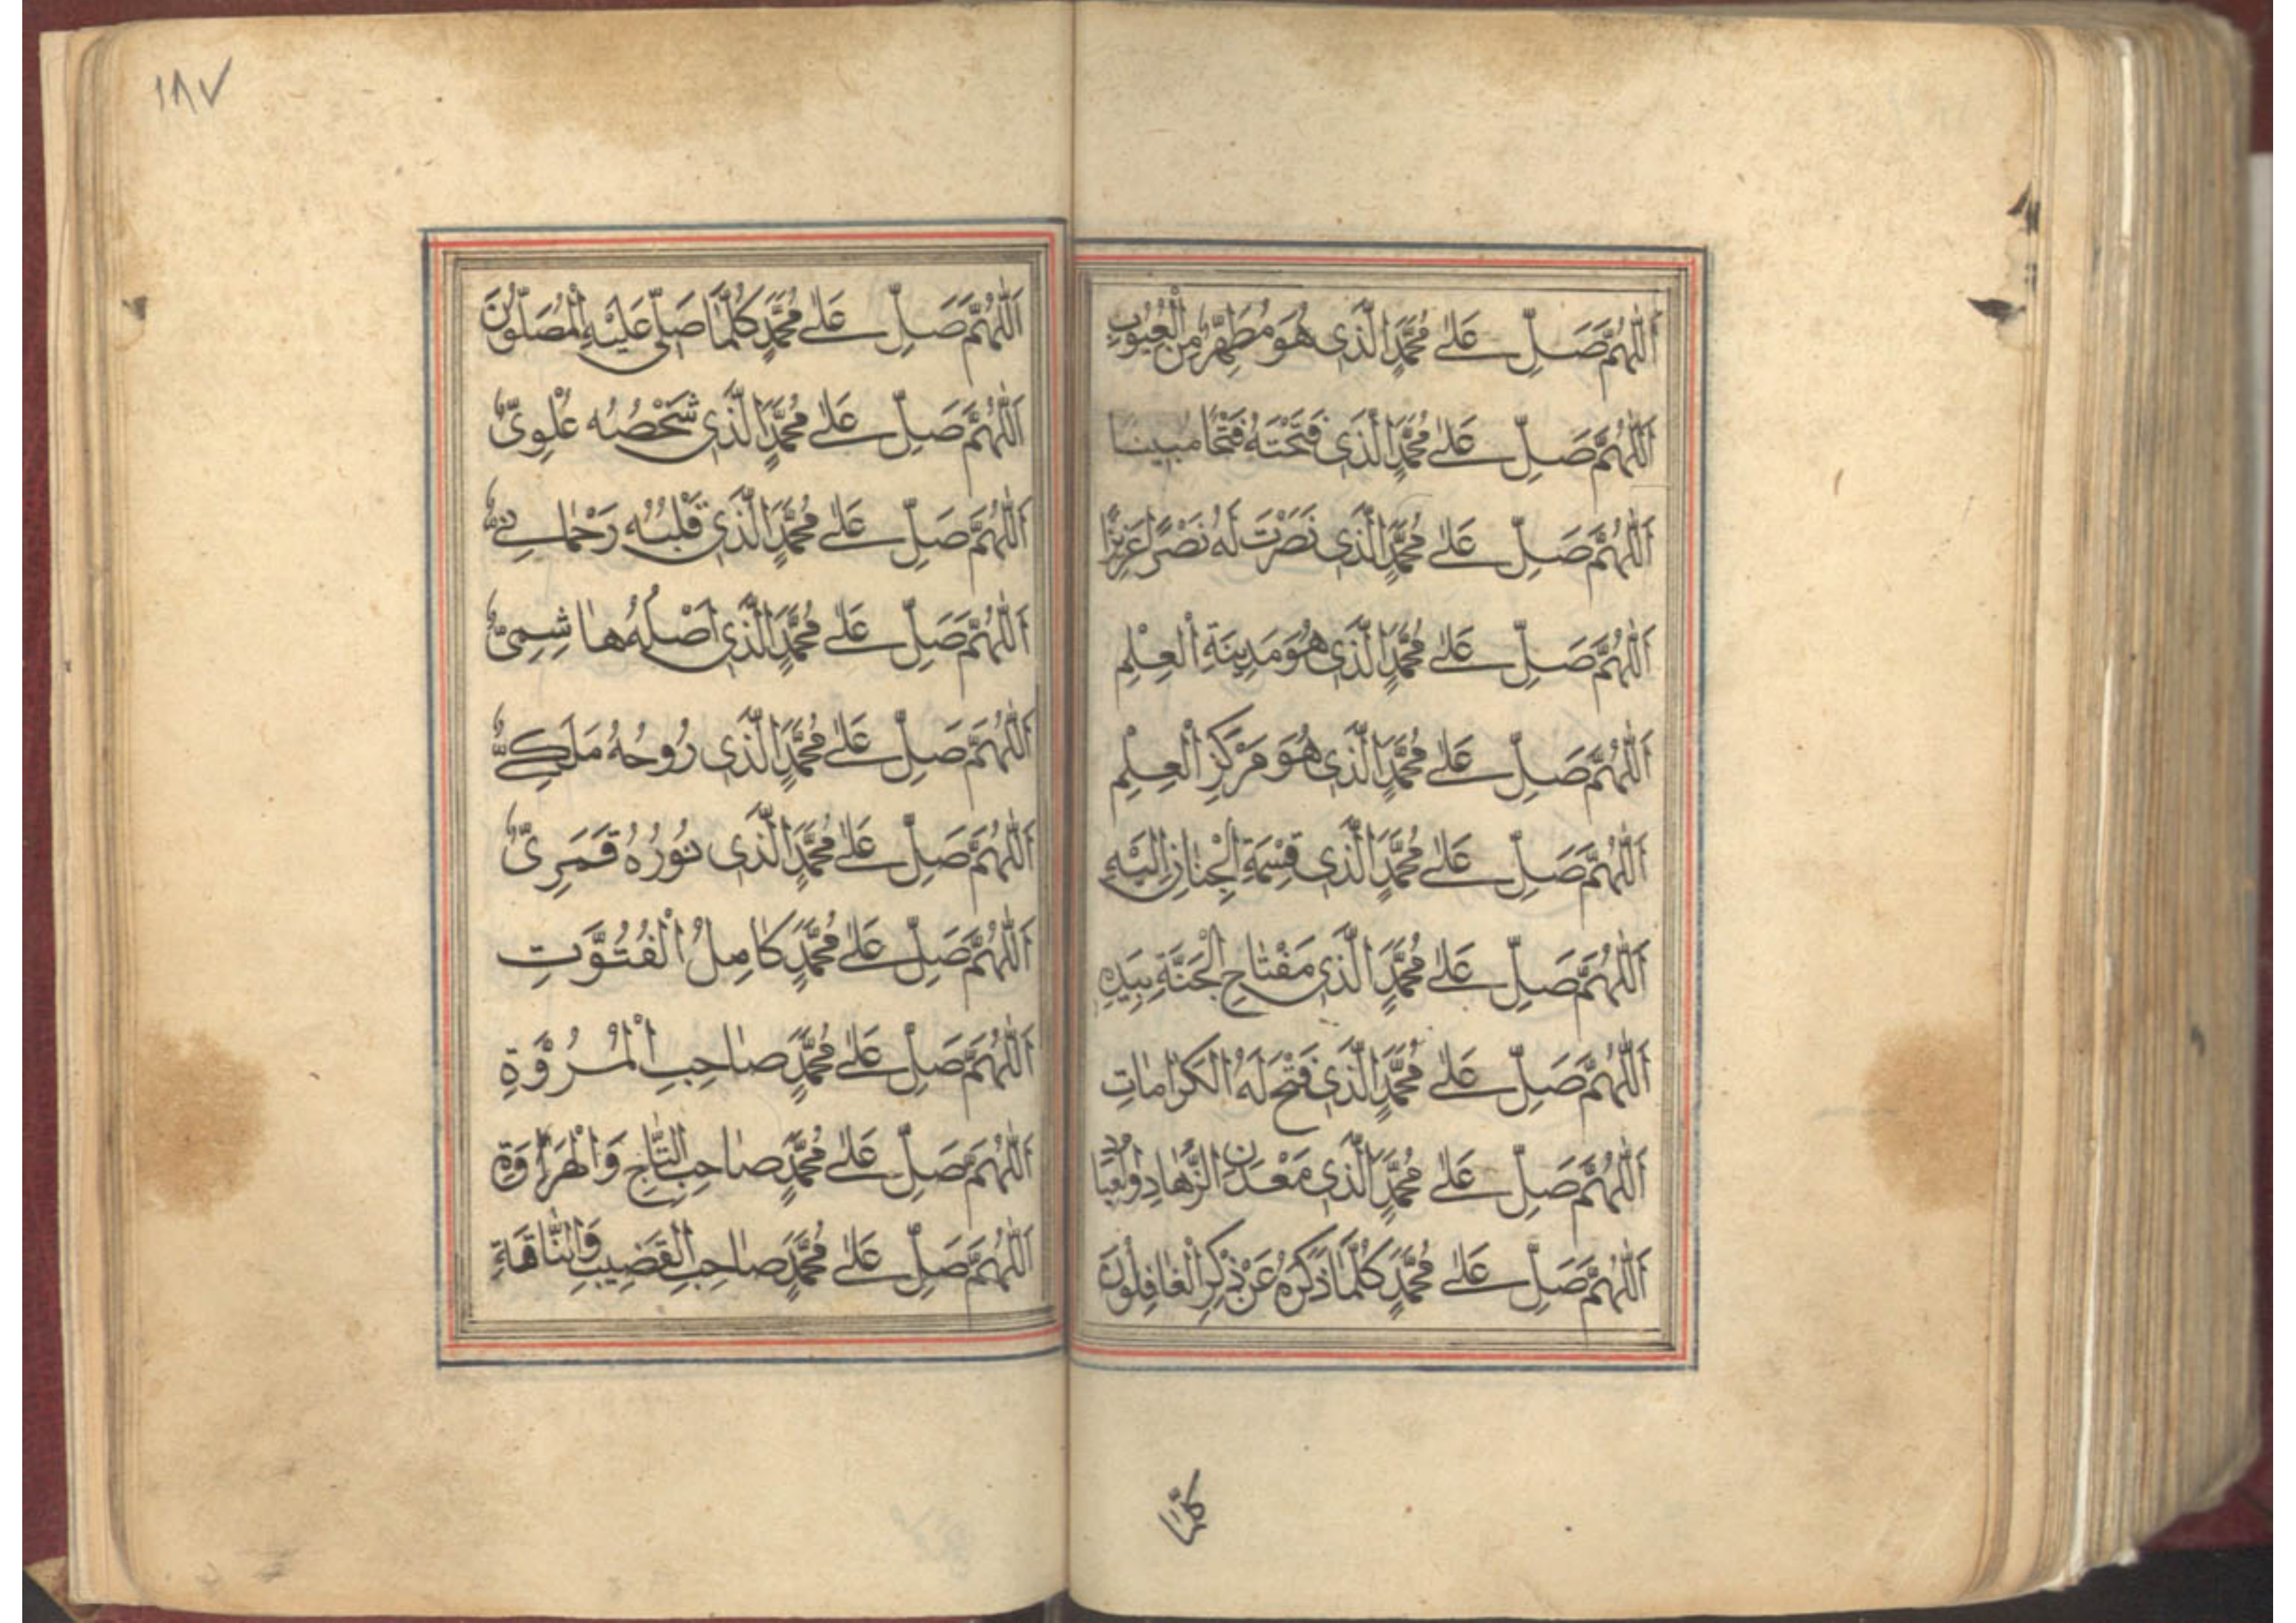 اَللّٰهُمَّ صَلِّ عَلٰى مُحَمَّدٍ الَّذِى هُوَ مُطَهَّرٌ مِنَ الْعُيُوبِ
اَللّٰهُمَّ صَلِّ عَلٰى مُحَمَّدٍ الَّذِى فَتَحْتَهُ فَتْحًا مبينا
اَللّٰهُمَّ صَلِّ عَلٰى مُحَمَّدٍ الَّذِى نَصَرْتَ لَهُ نَصْرًا عَزِيزًا
اَللّٰهُمَّ صَلِّ عَلٰى مُحَمَّدٍ الَّذِى هُوَ مَدِينَةِ الْعِلْمِ
اَللّٰهُمَّ صَلِّ عَلٰى مُحَمَّدٍ الَّذِى هُوَ مَرْكَزِ الْعِلْمِ
اَللّٰهُمَّ صَلِّ عَلٰى مُحَمَّدٍ الَّذِى قِسْمَةِ الْجِنَانِ اِلَيْهِ
اَللّٰهُمَّ صَلِّ عَلٰى مُحَمَّدٍ الَّذِى مَفْتَاحِ الْجَنَّةِ بِيَدِهِ
اَللّٰهُمَّ صَلِّ عَلٰى مُحَمَّدٍ الَّذِى فَتْحَ لَهُ الكَرَامَاتِ
اَللّٰهُمَّ صَلِّ عَلٰى مُحَمَّدٍ الَّذِى مَعْدَن الزُّهَادِ وَالعُبَّادِ
اَللّٰهُمَّ صَلِّ عَلٰى مُحَمَّدٍ كُلَّمَا ذَكَرَهُ عَنْ ذِكْرِ الْغَافِلُونَ
كلما
١٨٧
اَللّٰهُمَّ صَلِّ عَلٰى مُحَمَّدٍ كُلَّمَا صَلّٰى عَلَيْهِ الْمُصَلُّونَ
اَللّٰهُمَّ صَلِّ عَلٰى مُحَمَّدٍ الَّذِى شَخْصُهُ عُلْوِىٌّ
اَللّٰهُمَّ صَلِّ عَلٰى مُحَمَّدٍ الَّذِى قَلْبُهُ رَحْمَانِىٌّ
اَللّٰهُمَّ صَلِّ عَلٰى مُحَمَّدٍ الَّذِى اَصْلُهُ هَاشِمِىٌّ
اَللّٰهُمَّ صَلِّ عَلٰى مُحَمَّدٍ الَّذِى رُوحُهُ مَلَكِىٌّ
اَللّٰهُمَّ صَلِّ عَلٰى مُحَمَّدٍ الَّذِى نُورُهُ قَمَرِىٌّ
اَللّٰهُمَّ صَلِّ عَلٰى مُحَمَّدٍ كَامِلُ الْفُتُوَّتِ
اَللّٰهُمَّ صَلِّ عَلٰى مُحَمَّدٍ صَاحِبِ الْمُرُوَّةِ
اَللّٰهُمَّ صَلِّ عَلٰى مُحَمَّدٍ صَاحِبِ التَّاجِ وَالْهَرَاوَةِ
اَللّٰهُمَّ صَلِّ عَلٰى مُحَمَّدٍ صَاحِبِ الْقَضِيبِ وَالنَّاقَةِ